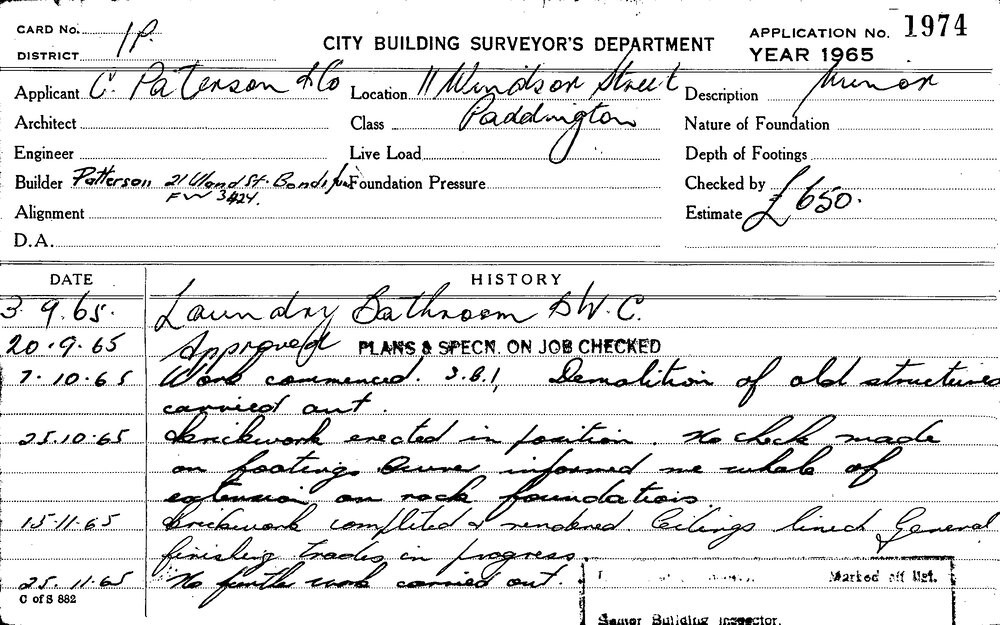 CARD No. 1P.
DISTRICT
CITY BUILDING SURVEYOR'S DEPARTMENT
APPLICATION No. 1974
YEAR 1965
Applicant C. Paterson & Co Location 11 Windsor Street Description Minor
Architect Class Paddington Nature of Foundation
Engineer Live Load Depth of Footings
Builder Patterson 21 Uland St. Bondi Foundation Pressure Checked by
FW 3424.
Alignment Estimate £650.
D.A.
DATE HISTORY
3.9.65. Laundry Bathroom & W.C.
20.9.65 Approved PLANS & SPECN. ON JOB CHECKED
7.10.65 Work commenced. S.B.1, Demolition of old structures
carried out.
25.10.65 Brickwork erected in position. No check made
on footings Owner informed me whole of
extension on rock foundations
15.11.65 Brickwork completed & rendered Ceilings lined General
finishing trades in progress.
25.11.65 No further work carried out.
C of S 882
Marked off list.
Senior Building Inspector.